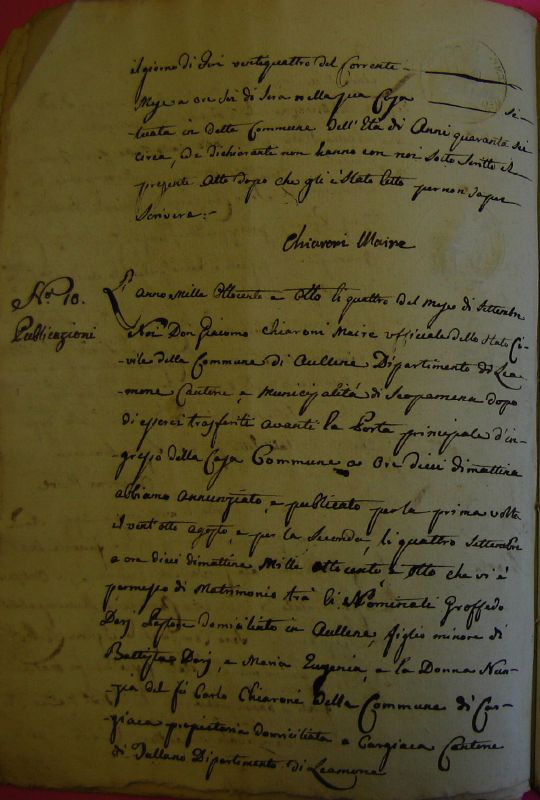 il giorno di Jeri ventiquattro del Corrente
Mese a ore sei di sera nella sua Casa si-
tuata in detta Commune dell'Età di Anni quaranta sei
circa, e dichiaranti non hanno con noi sotto scritto il
presente Atto dopo che gli è stato letto per non saper
scrivere:-
Chiaroni Maire
N.° 10.
Publicazioni
L'anno Mille Ottocento e Otto li quattro del mese di Settembre
Noi Don Giacomo Chiaroni Maire ufficiale dello stato Ci-
vile della Commune di Aullene Dipartimento di Lea-
mone Cantone, e Municipalità di Scopamena dopo
di esserci trasferiti avanti la Porta principale d'in-
gresso della Casa Commune a ore dieci di mattina
abbiamo annunziato, e publicato per la prima volta
il vent'otto agosto, e per la seconda, li quattro Settembre
a ore dieci di mattina Mille otto cento e otto che vi è
promesso di Matrimonio trà li Nominati Groffedo
Dorj Pastore domiciliato in Aullene, figlio minore di
Battista Dorj, e Maria Eugenia, e la Donna Nun-
zia del fù Carlo Chiaroni della Commune di Car-
giaca propietaria domiciliata a Cargiaca Cantone
di Tallano Dipartimento di Leamone